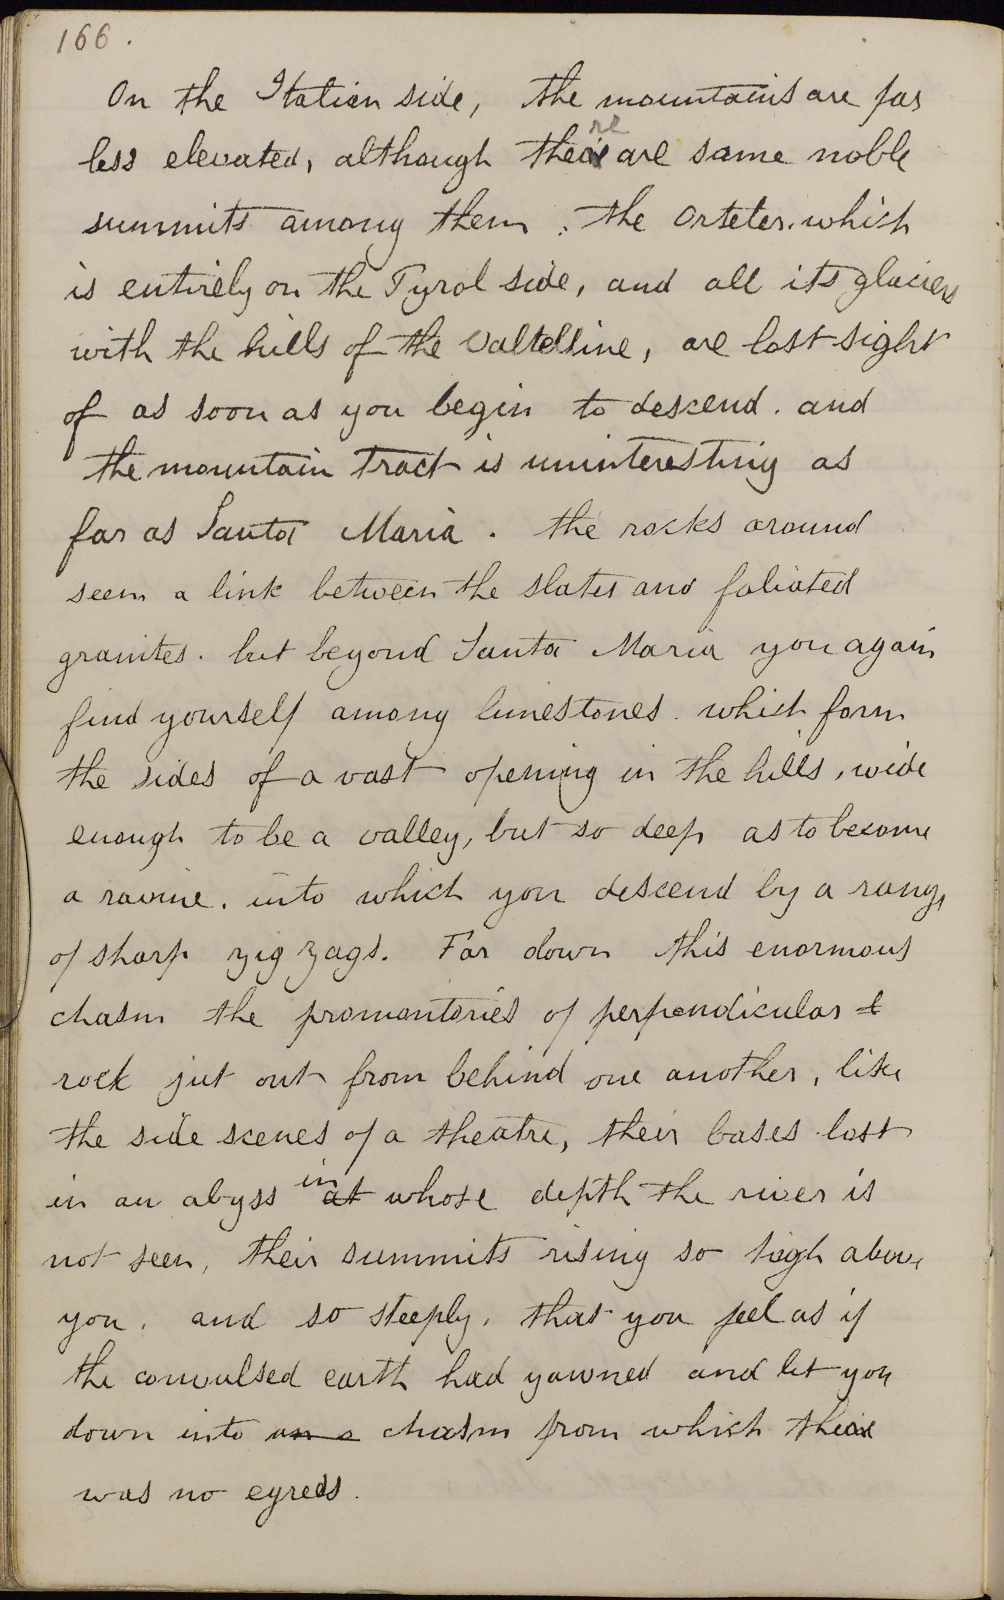 166.
On the Italian side, the mountains are far
less elevated, although there are some noble
summits among them; the Orteler. which
is entirely on the Tyrol side, and all its glaciers
with the hills of the Valtelline, are lost sight
of as soon as you begin to descend. and
the mountain tract is uninteresting as
far as Santa Maria. the rocks around
seem a link between the slates and foliated
granites. but beyond Santa Maria you again
find yourself among limestones. which form
the sides of a vast opening in the hills, wide
enough to be a valley, but so deep as to become
a ravine. into which you descend by a range
of sharp zig zags. Far down this enormous
chasm the promontories of perpendicular
rock jut out from behind one another, like
the side scenes of a theatre, their bases lost
in an abyss in at whose depth the river is
not seen, their summits rising so high above
you. and so steeply. that you feel as if
the convulsed earth had yawned and let you
down into a chasm from which there
was no egress.